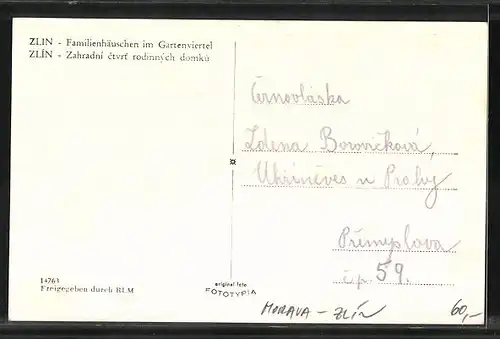 ZLIN - Familienhäuschen im Gartenviertel
ZLÍN - Zahradní čtvrť rodinných domků
Černovláska
Zdena Borovičková,
Uhříněves u Prahy
Přemyslova
čp. 59.
14763
Freigegeben durch RLM
original foto
FOTOTYPIA
MORAVA - ZLÍN
60,-